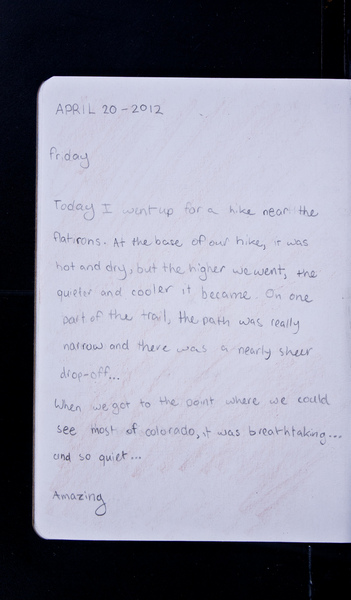 APRIL 20-2012
Friday
Today I went up for a hike near the
flatirons. At the base of our hike, it was
hot and dry, but the higher we went, the
quieter and cooler it became. On one
part of the trail, the path was really
narrow and there was a nearly sheer
drop-off...
When we got to the point where we could
see most of colorado, it was breathtaking...
and so quiet...
Amazing